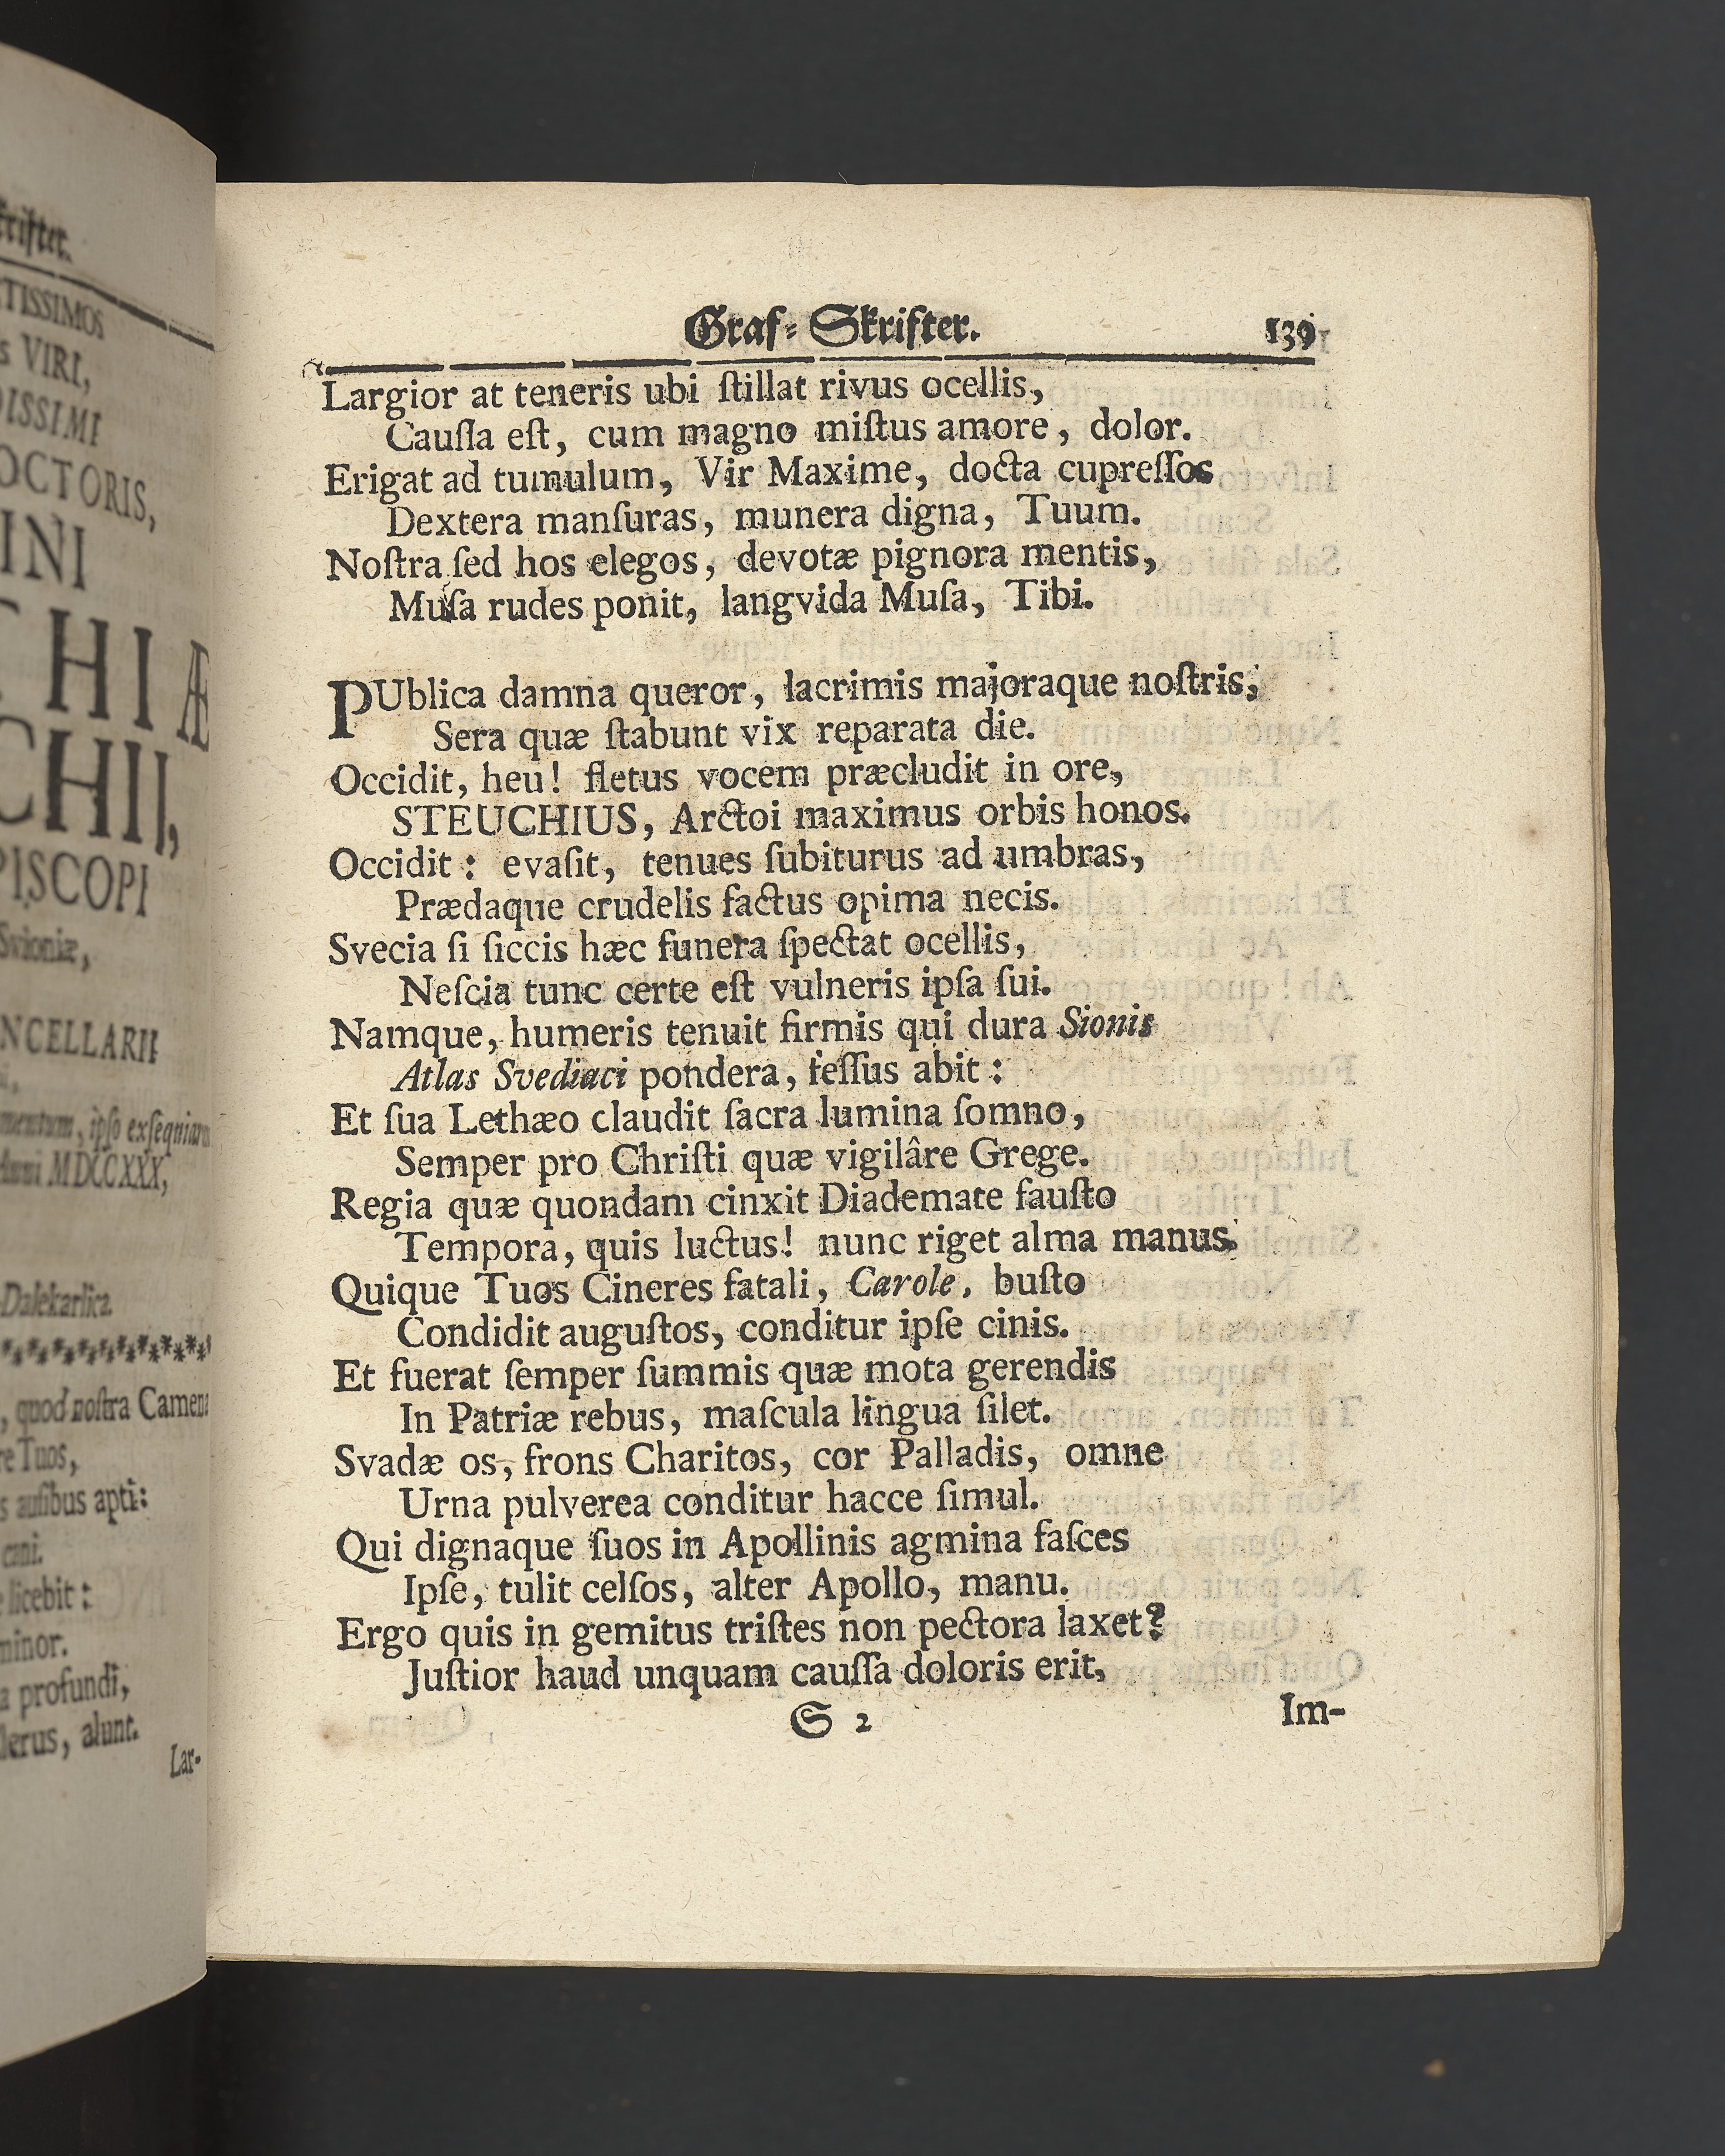 TISSIMOS
VIRI,
DISSIMI
OCTORIS,
INI
CHIÆ
CHII,
PISCOPI
Svioniæ,
NCELLARII
mentum, ipſo exſeqviarum
Anni MDCCXXX,
Dalekarlica
, quod noſtra Camena
re Tuos,
s auſibus apti:
cani.
licebit:
minor.
a profundi,
lerus, alunt.
Lar-
Graf-Skrifter. 139
Largior at teneris ubi ſtillat rivus ocellis,
Cauſſa eſt, cum magno miſtus amore, dolor.
Erigat ad tumulum, Vir Maxime, docta cupreſſos
Dextera manſuras, munera digna, Tuum.
Noſtra ſed hos elegos, devotæ pignora mentis,
Muſa rudes ponit, langvida Muſa, Tibi.
PUblica damna queror, lacrimis majoraque noſtris,
Sera quæ ſtabunt vix reparata die.
Occidit, heu! fletus vocem præcludit in ore,
STEUCHIUS, Arctoi maximus orbis honos.
Occidit: evaſit, tenues ſubiturus ad umbras,
Prædaque crudelis factus opima necis.
Svecia ſi ſiccis hæc funera ſpectat ocellis,
Neſcia tunc certe eſt vulneris ipſa ſui.
Namque, humeris tenuit firmis qui dura Sionis
Atlas Svediaci pondera, feſſus abit:
Et ſua Lethæo claudit ſacra lumina ſomno,
Semper pro Chriſti quæ vigilâre Grege.
Regia quæ quondam cinxit Diademate fauſto
Tempora, quis luctus! nunc riget alma manus.
Quique Tuos Cineres fatali, Carole, buſto
Condidit auguſtos, conditur ipſe cinis.
Et fuerat ſemper ſummis quæ mota gerendis
In Patriæ rebus, maſcula lingua ſilet.
Svadæ os, frons Charitos, cor Palladis, omne
Urna pulverea conditur hacce ſimul.
Qui dignaque ſuos in Apollinis agmina faſces
Ipſe, tulit celſos, alter Apollo, manu.
Ergo quis in gemitus triſtes non pectora laxet?
Juſtior haud unquam cauſſa doloris erit,
S 2 Im-